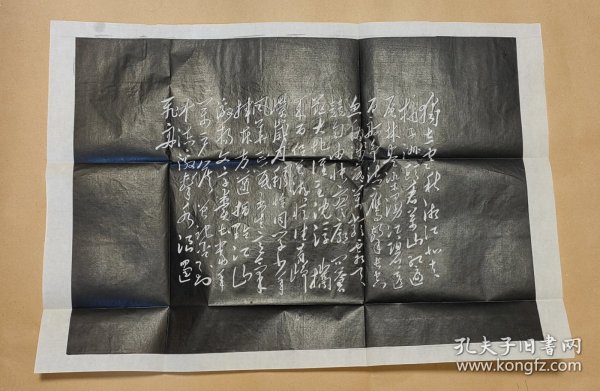 独立寒秋湘江北去
橘子洲头看万山红遍
层林尽染漫江碧透
百舸争流鹰击长空鱼翔
浅底万类霜天
竞自由怅寥廓问苍
茫大地谁主沉浮携
来百侣曾游忆往昔峥
嵘岁月稠恰同学少年
风华正茂书生意气
挥斥方遒指点江山
激扬文字粪土当年
万户侯曾记否到
中流击水浪遏
飞舟
孔夫子旧书网
www.kongfz.com